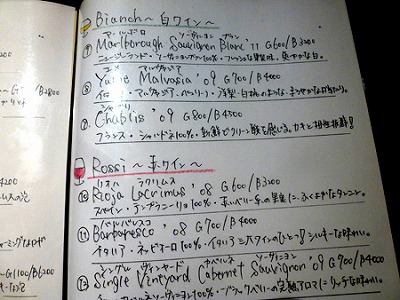 Bianch〜白ワイン〜
マールボロ ソーヴィニヨン ブラン
⑦ Marlborough Sauvignon Blanc '11 G600/B3200
ニュージーランド・ソーヴィニヨンブラン100%・フレッシュな果実味、爽やかな白。
マルヴァジア
⑧ Malvasia '09 G700/B4000
マルヴァジア・
シャブリ
⑨ Chablis '09 G800/B4500
フランス・シャルドネ100%・新鮮でクリーンな酸を感じる。カキと相性抜群!
Rossi 〜赤ワイン〜
リオハ ラクリムス
⑩ Rioja Lacrimus '08 G600/B3200
スペイン・テンプラニーリョ100%・赤いベリー系の果実に、ふくよかなタンニン。
バルバレスコ
⑪ Barbaresco '08 G700/B4000
イタリア・ネッビオーロ100%・イタリア三大ワインのひとつ!シルキーな味わい。
シングル ヴィンヤード カベルネ ソーヴィニヨン
⑫ Single Vineyard Cabernet Sauvignon '09 G700/B4000
ソーヴィニヨン100%・
3200
B2800
4200
G1100/B6200